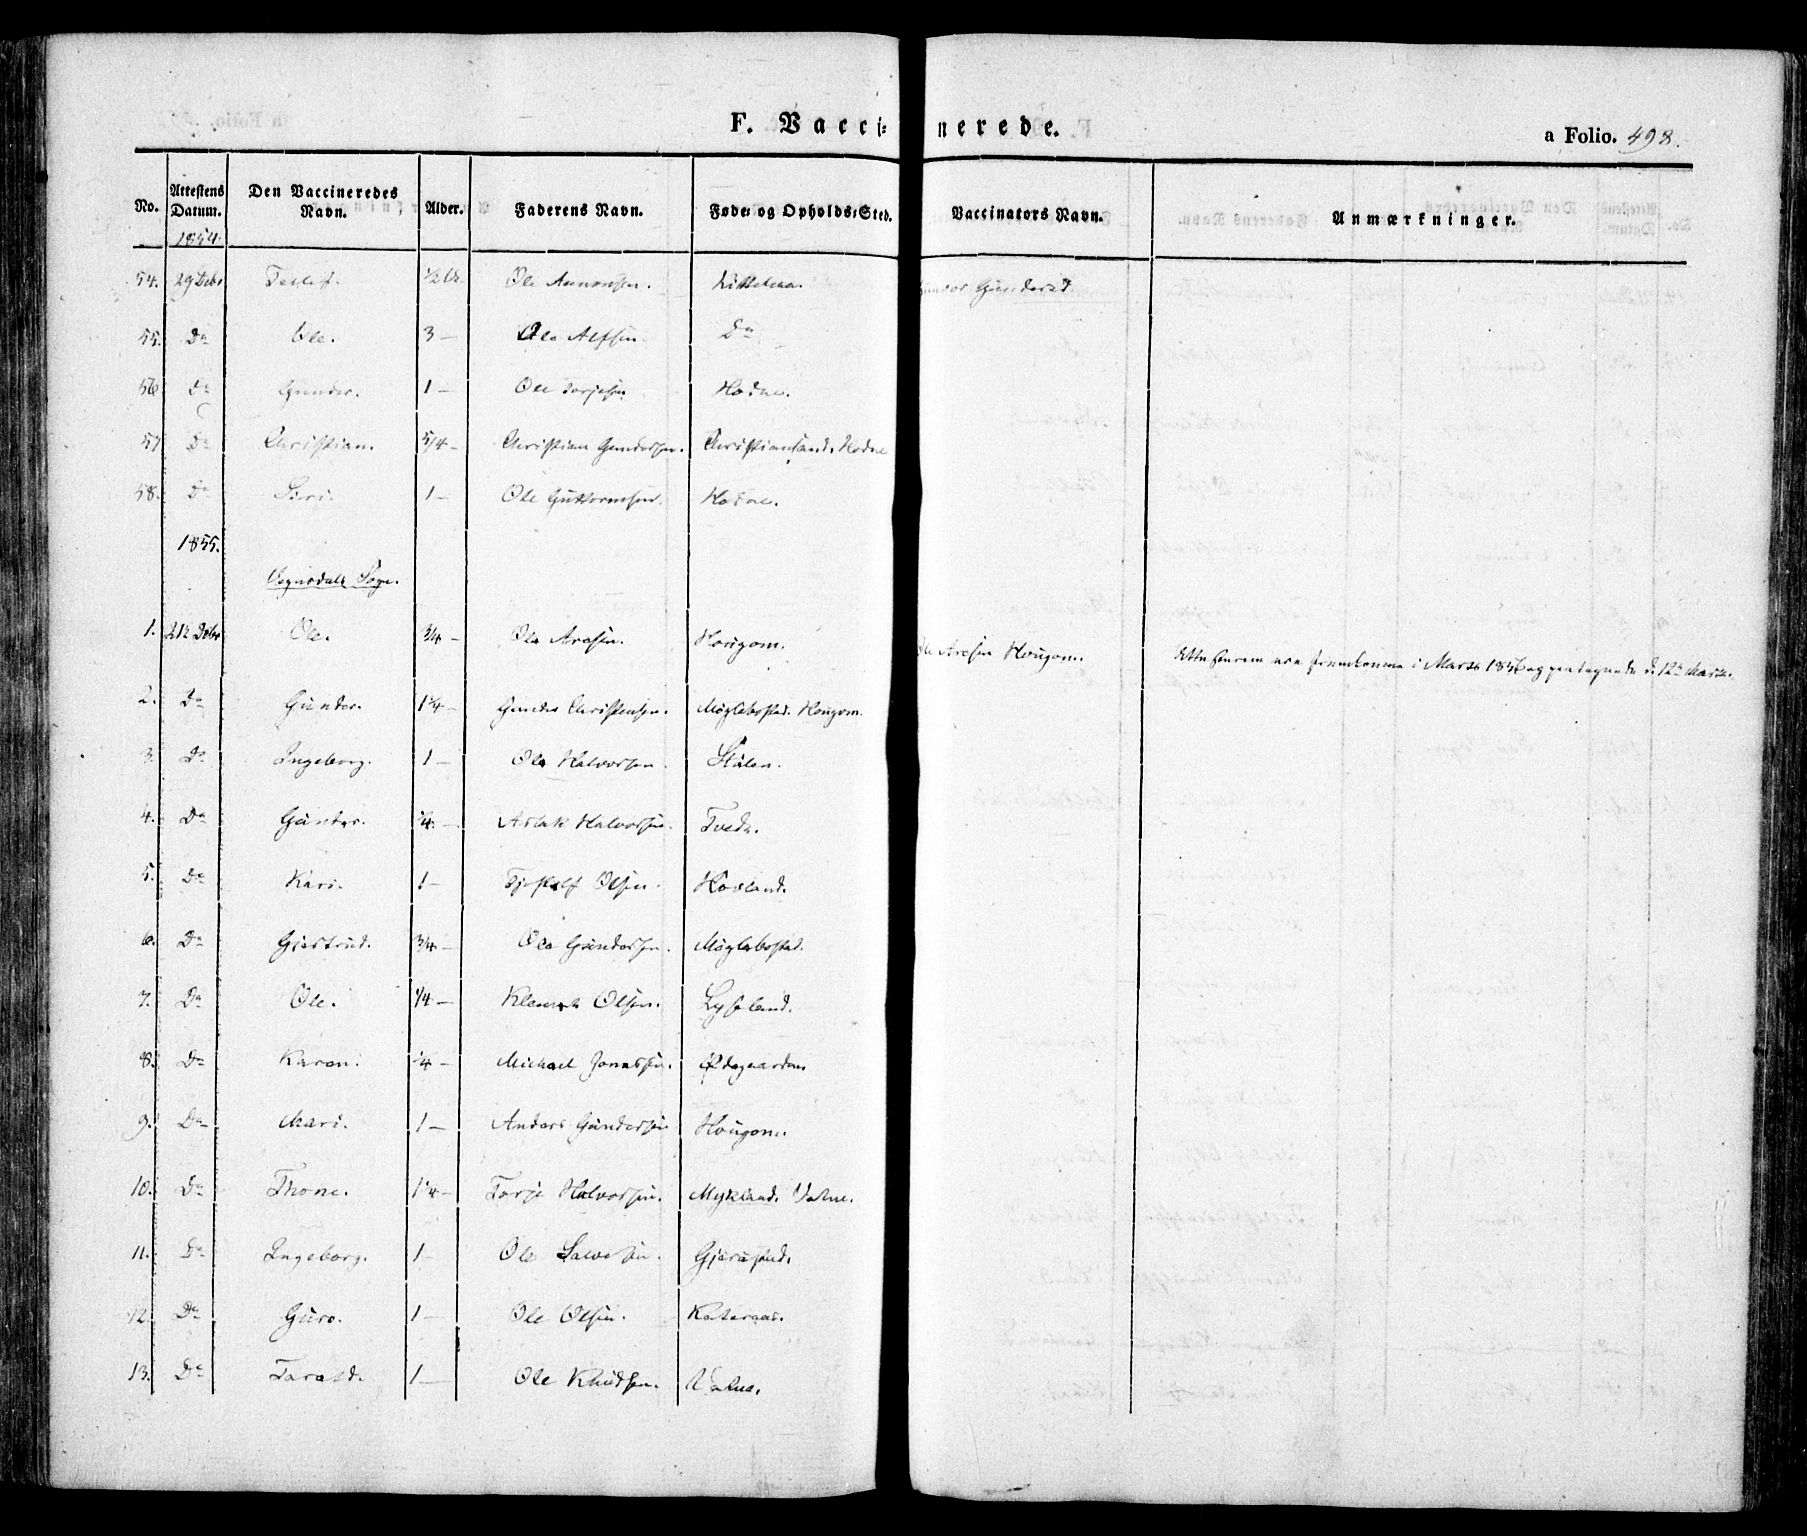 F. Vacci- nerede.
a Folio. 498.
No. Attestens Datum. Den Vaccineredes Navn. Alder. Faderens Navn. Føde- og Opholds-Sted. Vaccinators Navn. Anmærkninger.
1854.
54. 29 Decbr Ole Aanonsen. Gunderse
55. Do Ole. 3 — Ole Alfsen. Do
56. Do Gunder. 1 — Ole Torjesen Hodne.
57 Do Christian. 5/4 — Christian Gundersen. Christiansand. Hodne
58. Do Siri. 1 — Ole Guttormsen. Hodne.
1855.
Vegusdals Sogn.
1. 21de Decbr Ole. 3/4 — Ole Aresen. Hougom. Ole Aresen Hougom. 1856 og 12te Marts.
2. Do Gunder. 1 1/4 — Gunder Christensen. Møglebostad. Hougom.
3. Do Ingeborg. 1 — Ole Halvorsen. Stålen.
4. Do Gunder. 1/4 — Aslak Halvorsen. Tvede.
5. Do Kari. 1 — Olsen. Hovland.
6. Do Giertrud. 3/4 — Ole Gundersen. Møglebostad.
7. Do Ole. 1/4 — Klemet Olsen. Lyseland.
8. Do Karen. 1/4 — Michael Jonassen. Ødegaarden
9. Do Mari. 1 — Anders Gundersen Hougom.
10. Do Thone. 1 1/4 — Torje Halvorsen. Mykland. Vatne.
11. Do Ingeborg. 1 — Ole Salvesen. Gjerustad.
12. Do Guro. 1 — Ole Olsen. Kateraas.
13. Do Tarald. 1 — Ole Knudsen. Vatne.